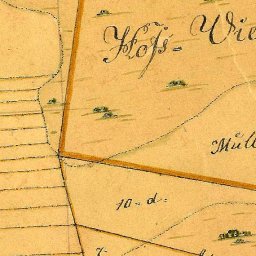 Hofs- Wie
Mül
10. d.
7.